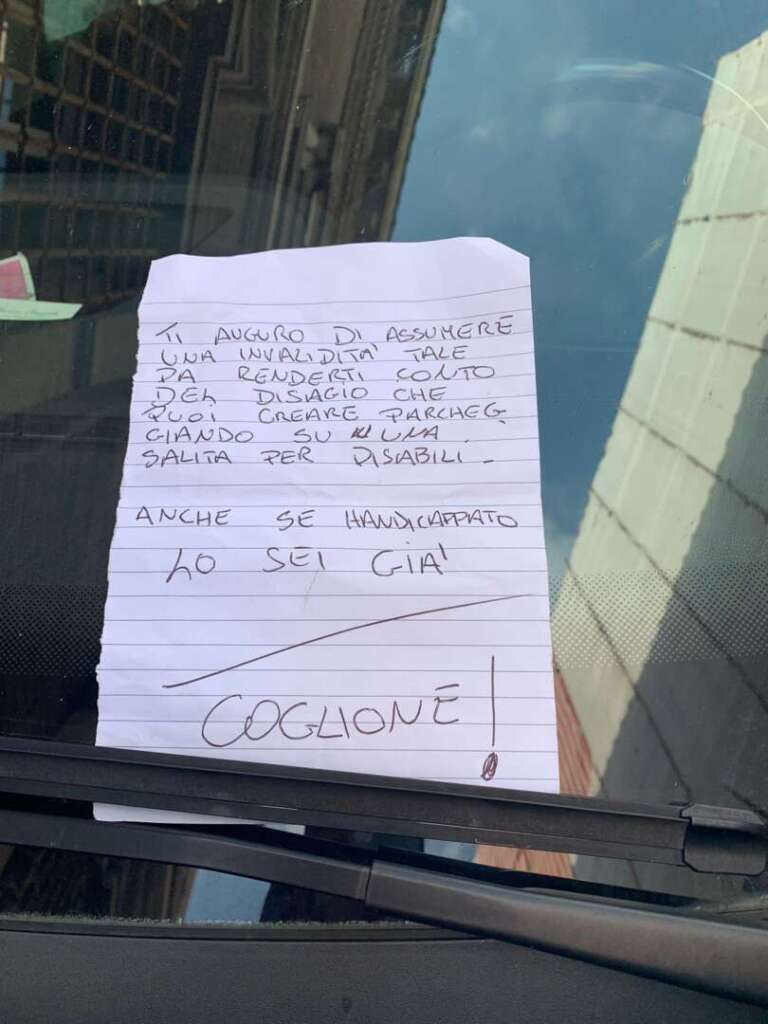 TI AUGURO DI ASSUMERE
UNA INVALIDITA' TALE
DA RENDERTI CONTO
DEL DISAGIO CHE
PUOI CREARE PARCHEG
GIANDO SU UNA
SALITA PER DISABILI -
ANCHE SE HANDICAPPATO
LO SEI GIA'
COGLIONE!